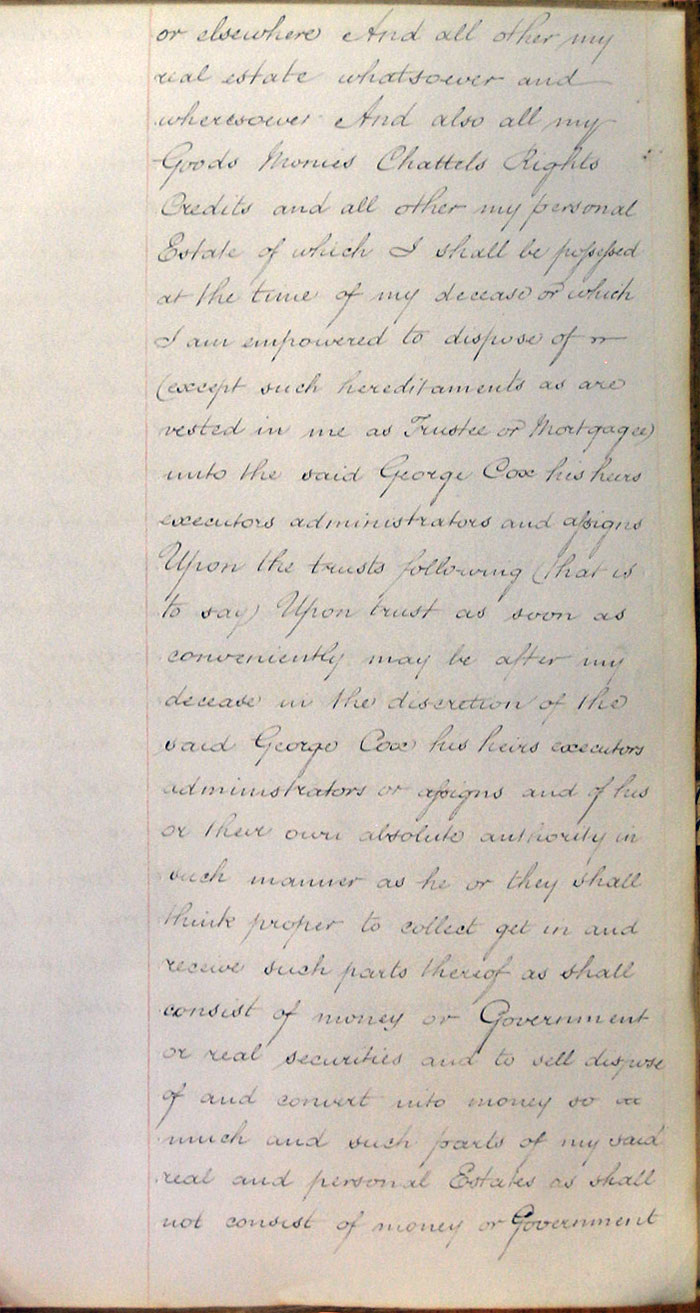 or elsewhere And all other my
real estate whatsoever and
wheresoever And also all my
Goods Monies Chattels Rights
Credits and all other my personal
Estate of which I shall be poſseſsed
at the time of my decease or which
I am empowered to dispose of
(except such hereditaments as are
vested in me as Trustee or Mortgagee)
unto the said George Cox his heirs
executors administrators and aſsigns
Upon the trusts following (that is
to say) Upon trust as soon as
conveniently may be after my
decease in the discretion of the
said George Cox his heirs executors
administrators or aſsigns and of his
or their own absolute authority in
such manner as he or they shall
think proper to collect get in and
receive such parts thereof as shall
consist of money or Government
or real securities and to sell dispose
of and convert into money so
much and such parts of my said
real and personal Estates as shall
not consist of money or Government